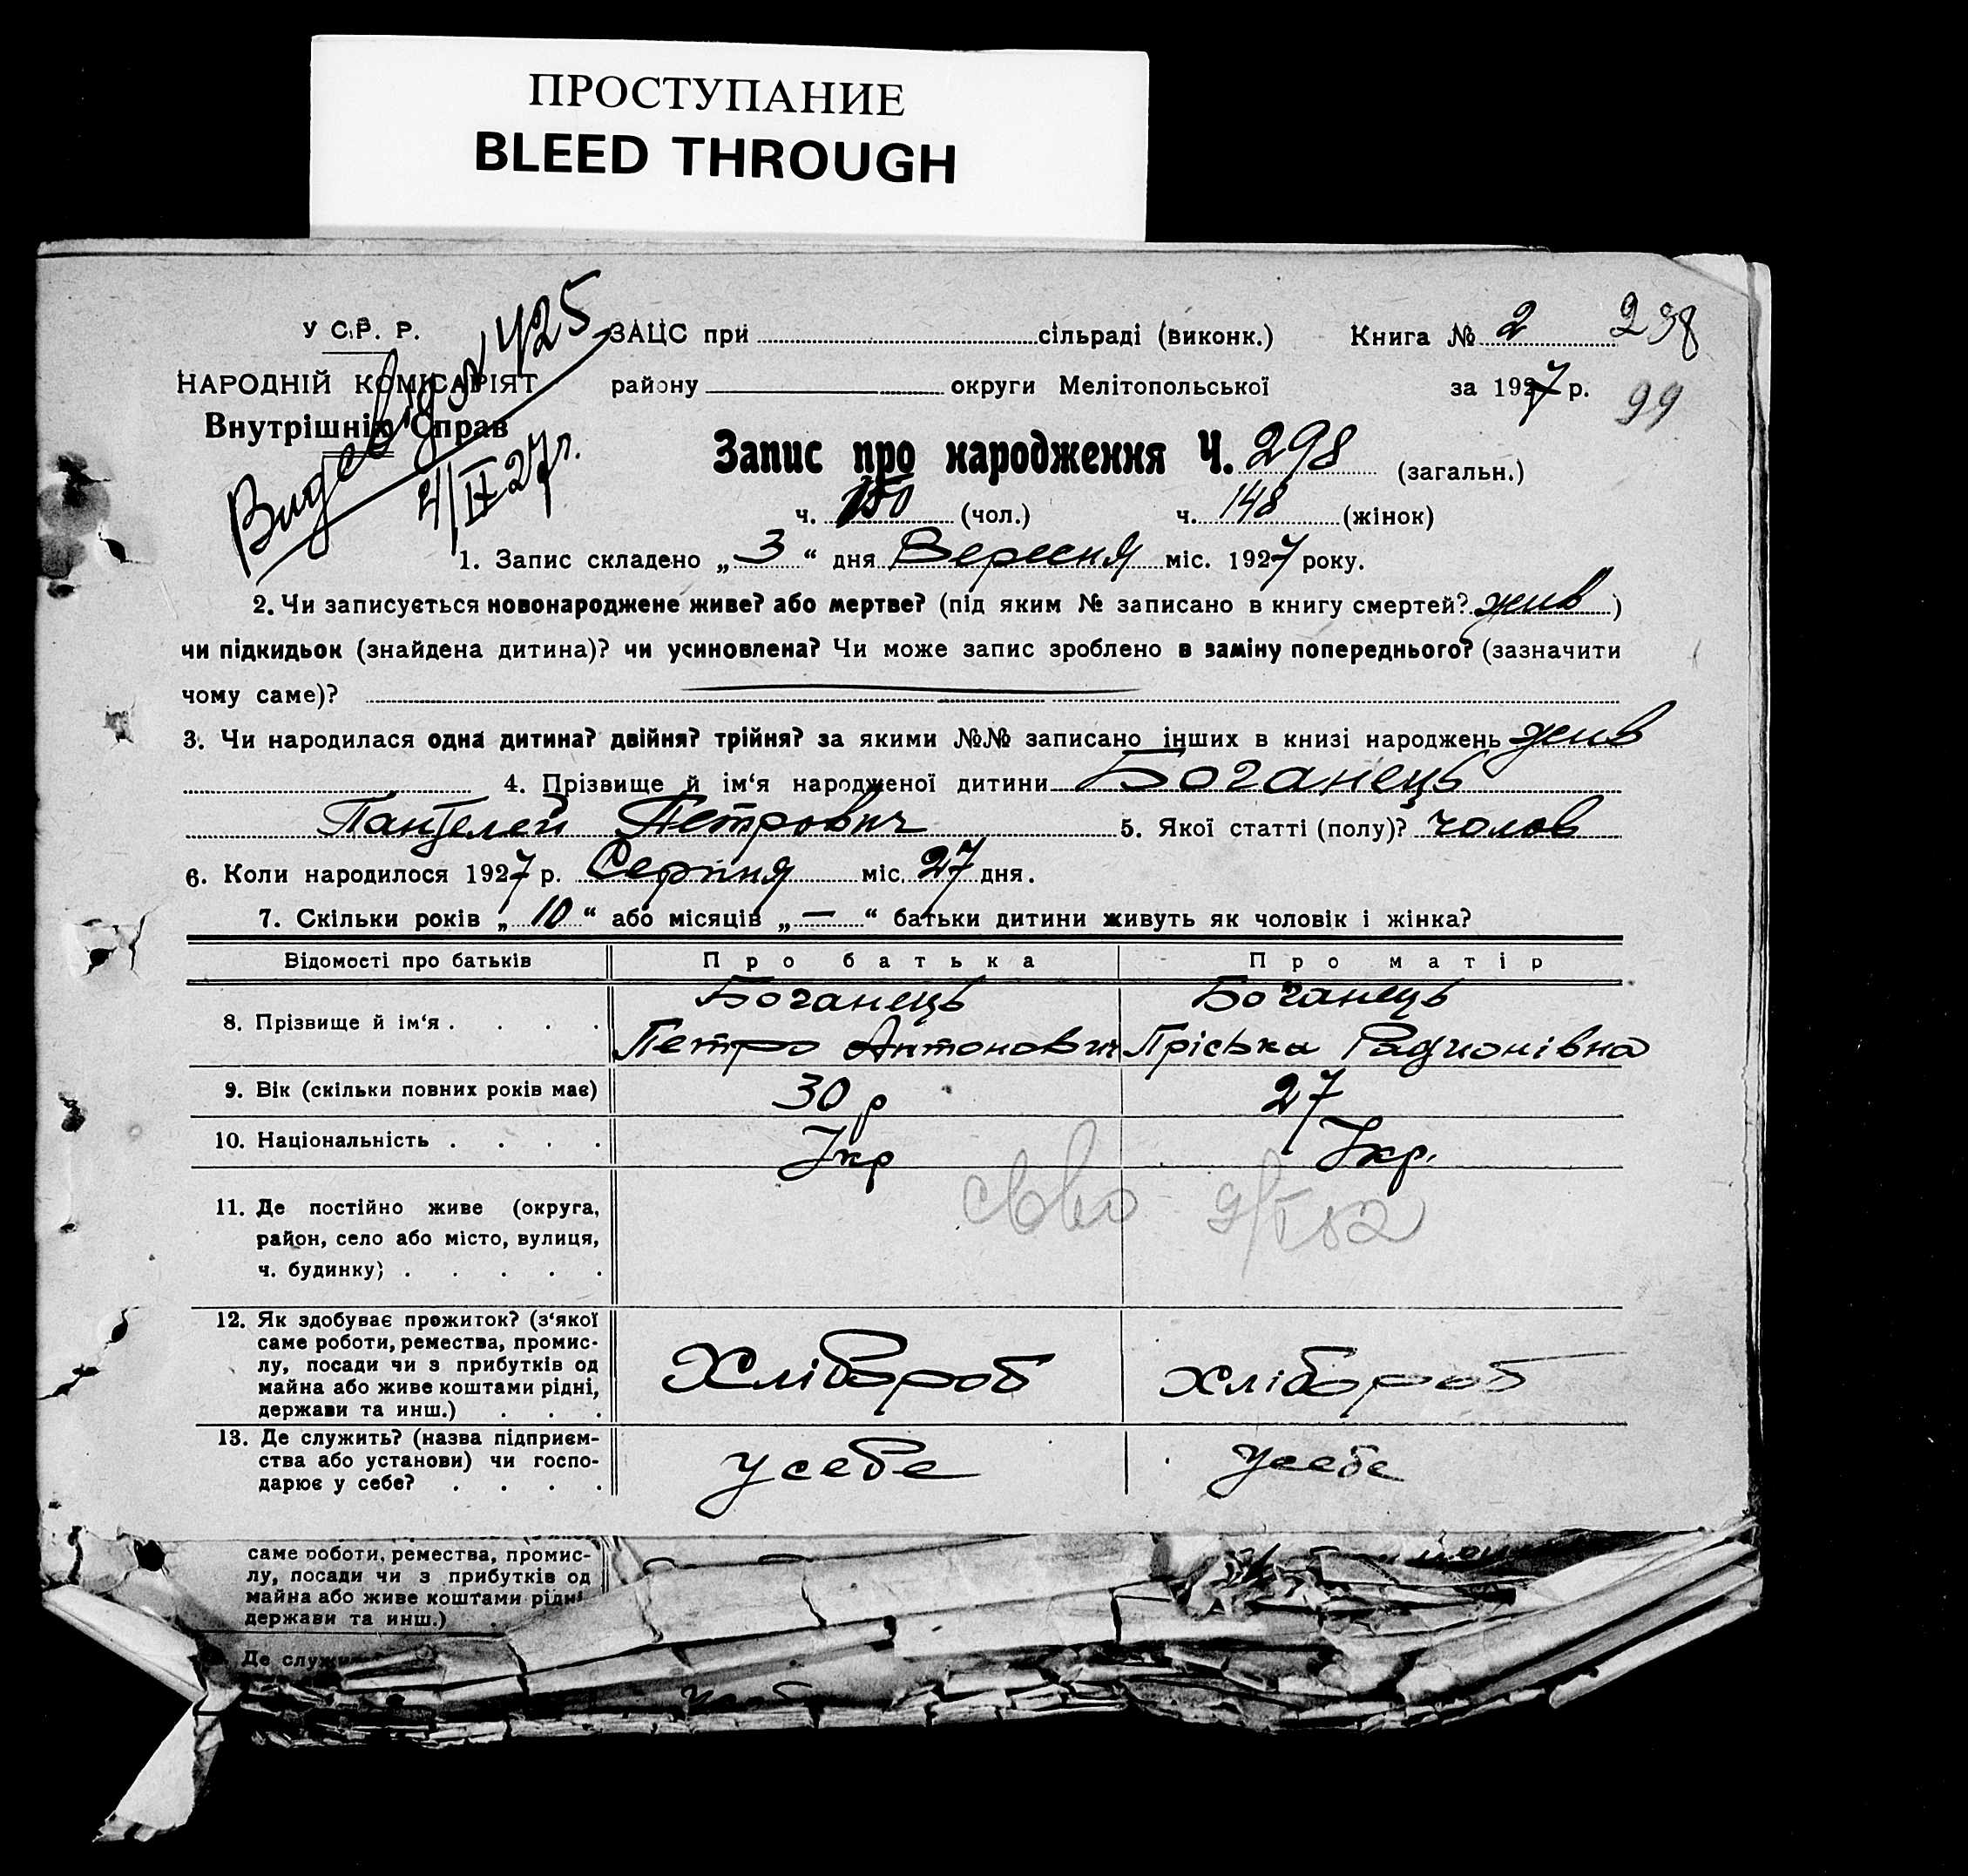 ПРОСТУПАНИЕ
BLEED THROUGH
У С.Р. Р.
НАРОДНІЙ КОМІСАРІЯТ
Внутрішніх Справ
425
ЗАЦС при сільраді (виконк.) Книга № 2 298
району округи Мелітопольської за 1927 р. 99
Запис про народження Ч. 298 (загальн.)
ч. 150 (чол.) ч. 148 (жінок)
1. Запис складено „ 3 “ дня Вересня міс. 1927 року.
2. Чи записується новонароджене живе? або мертве? (під яким № записано в книгу смертей? жив )
чи підкидьок (знайдена дитина)? чи усиновлена? Чи може запис зроблено в заміну попереднього? (зазначити
чому саме)?
3. Чи народилася одна дитина? двійня? трійня? за якими №№ записано інших в книзі народжень жив
4. Прізвище й ім‘я народженої дитини Боганець
Пантелей Петрович 5. Якої статті (полу)? чолов
6. Коли народилося 1927 р. Серпня міс. 27 дня.
7. Скільки років „ 10 “ або місяців „ — “ батьки дитини живуть як чоловік і жінка?
Відомості про батьків Про батька Про матір
8. Прізвище й ім‘я . . . . Боганець Боганець
Петро Антонович Пріська Радионівна
9. Вік (скільки повних років має) 30 р 27
10. Національність . . . . Укр Укр.
11. Де постійно живе (округа,
район, село або місто, вулиця,
ч. будинку) . . . . .
12. Як здобуває прожиток? (з‘якої
саме роботи, ремества, промис-
лу, посади чи з прибутків од
майна або живе коштами рідні,
держави та инш.) . . .
Хлібороб Хлібороб
13. Де служить? (назва підприєм-
ства або установи) чи госпо-
дарює у себе? . . . .
усебе усебе
саме роботи, ремества, промис-
лу, посади чи з прибутків од
майна або живе коштами рідні
держави та инш.)
Де